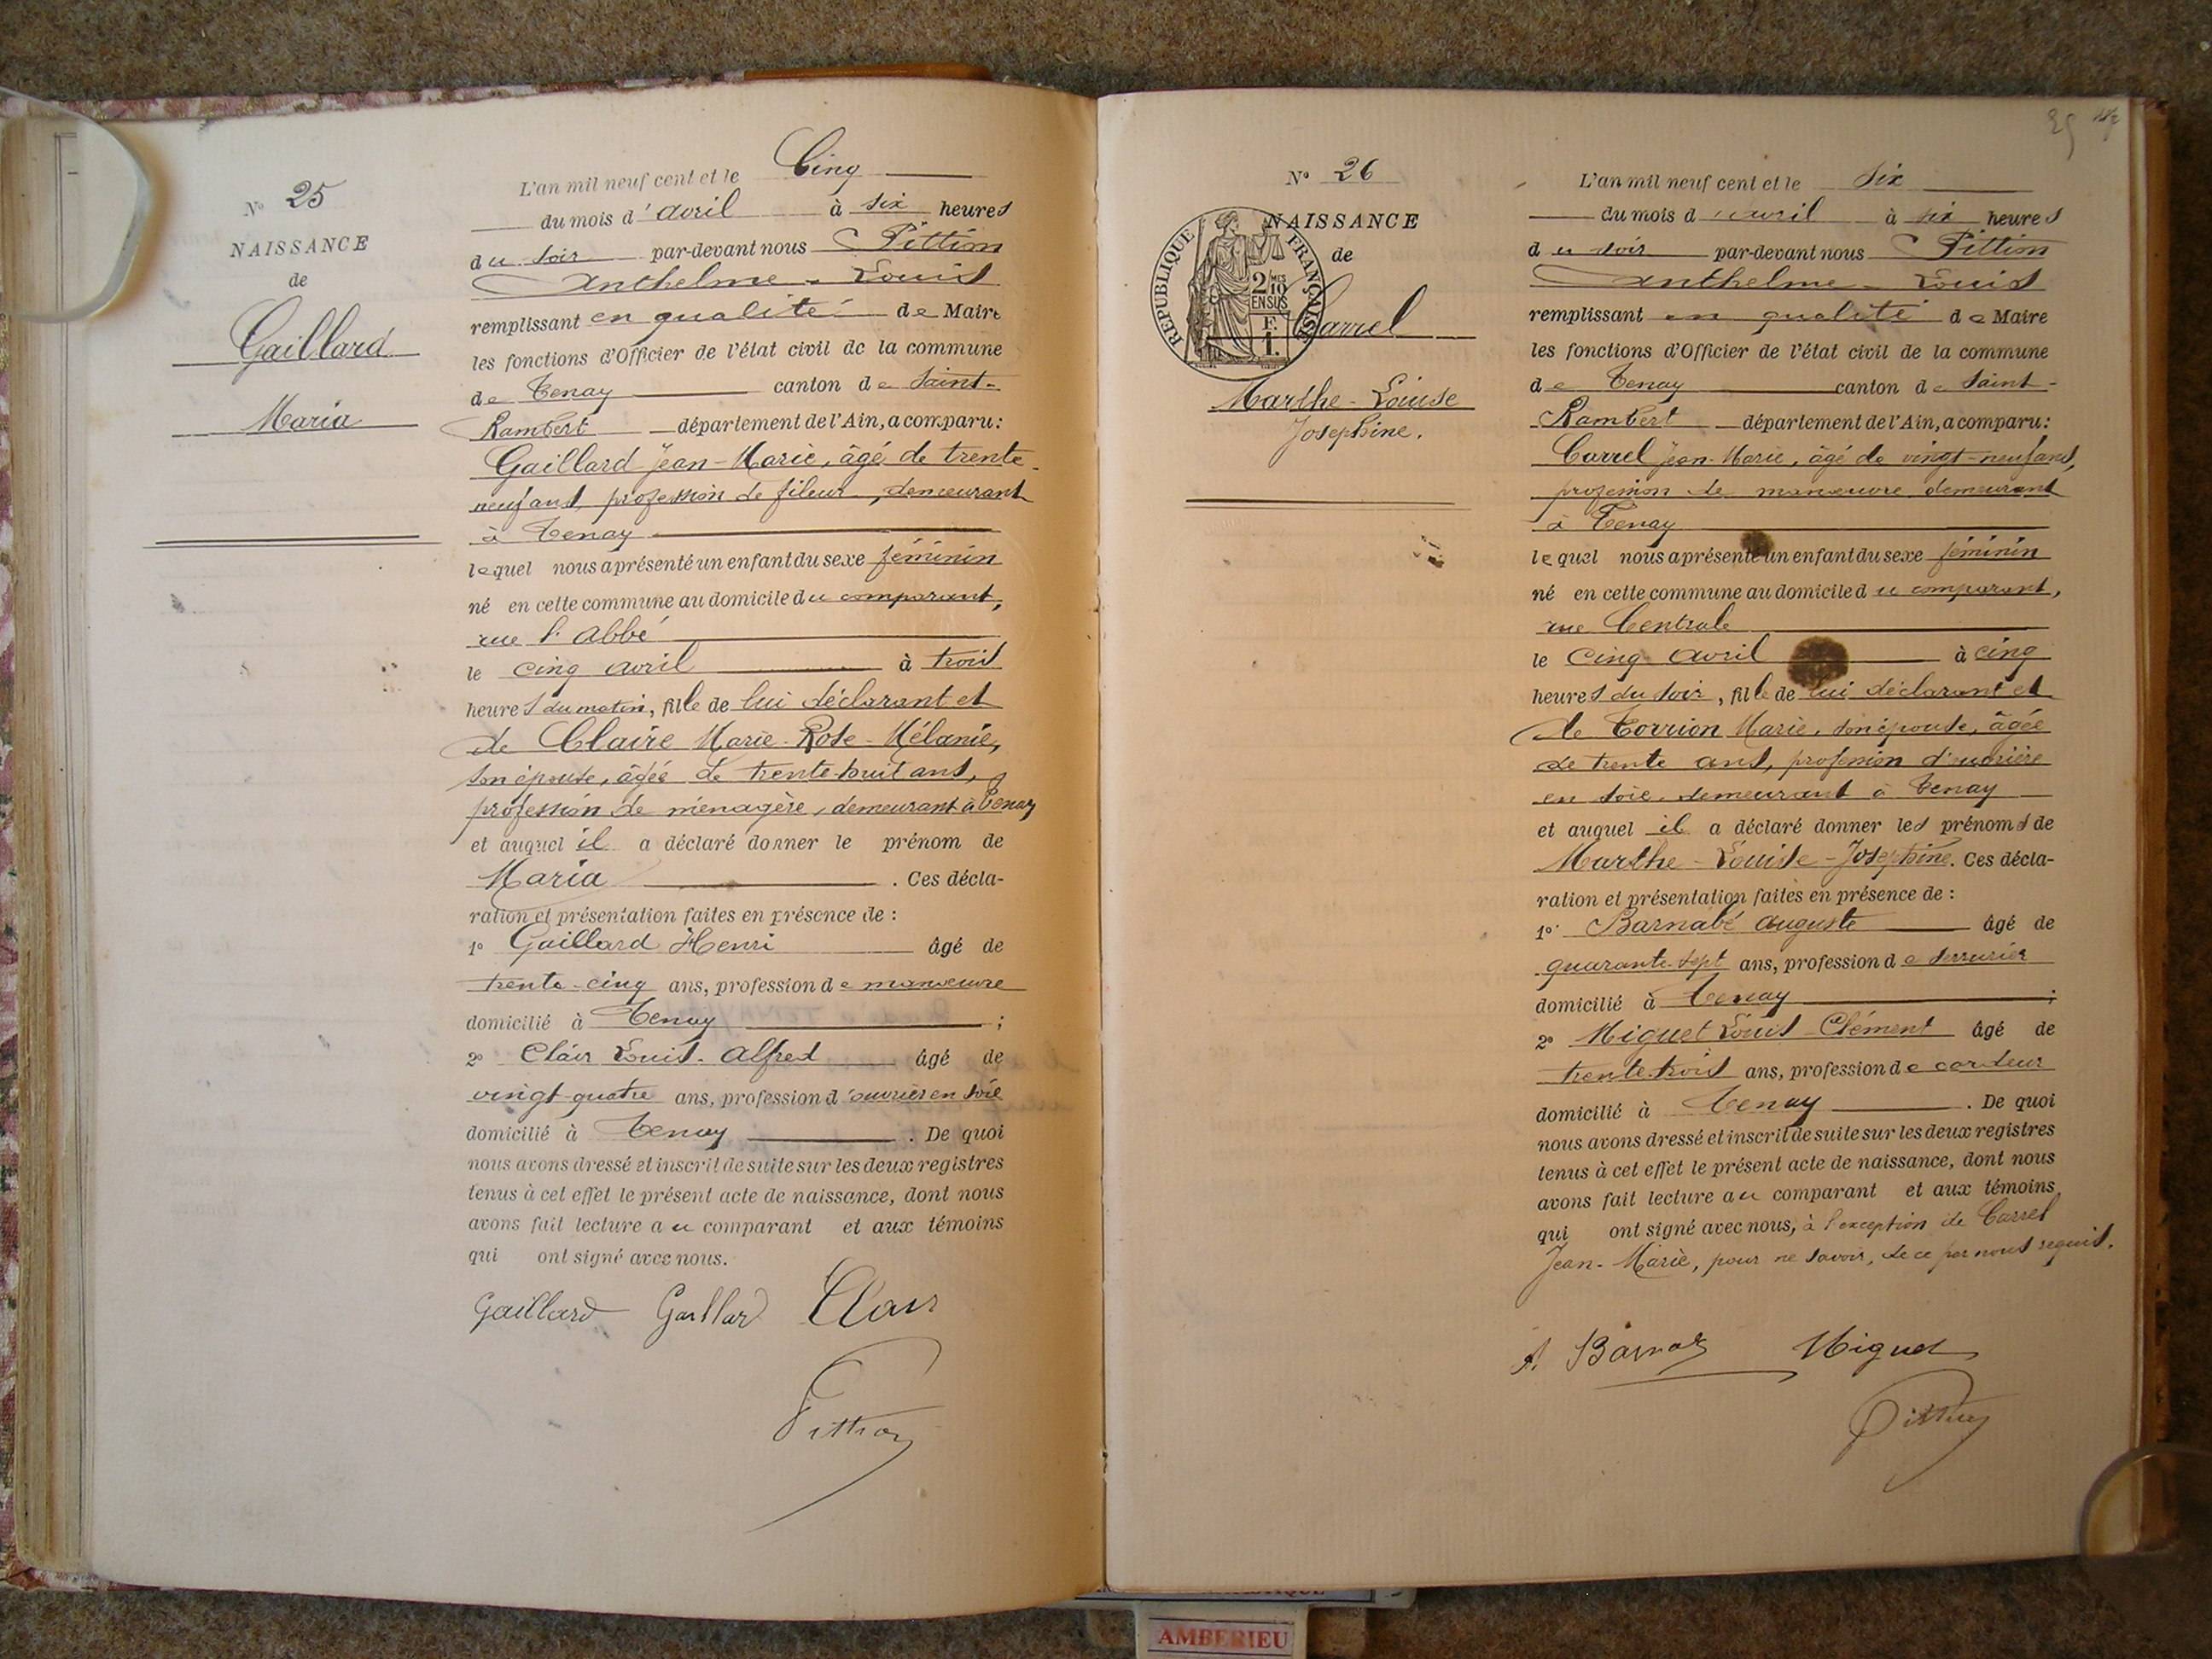 N° 25
NAISSANCE
de
Gaillard
Maria
L'an mil neuf cent et le Cinq
du mois d'avril à six heures
du soir par-devant nous Pittion
Anthelme-Louis
remplissant en qualité de Maire
les fonctions d'Officier de l'état civil de la commune
de Tenay canton de Saint-
Rambert département de l'Ain, a comparu:
Gaillard Jean-Marie, âgé de trente-
neuf ans, profession de fileur, demeurant
à Tenay
lequel nous a présenté un enfant du sexe féminin
né en cette commune au domicile du comparant,
rue l'Abbé
le cinq avril à trois
heures du matin, fille de lui déclarant et
de Claire Marie-Rose-Mélanie,
son épouse, âgée de trente-huit ans,
profession de ménagère, demeurant à Tenay
et auquel il a déclaré donner le prénom de
Maria. Ces décla-
ration et présentation faites en présence de :
1° Gaillard Henri âgé de
trente-cinq ans, profession de manœuvre
domicilié à Tenay ;
2° Clair Louis-Alfred âgé de
vingt-quatre ans, profession d'ouvrier en soie
domicilié à Tenay. De quoi
nous avons dressé et inscrit de suite sur les deux registres
tenus à cet effet le présent acte de naissance, dont nous
avons fait lecture au comparant et aux témoins
qui ont signé avec nous.
Gaillard Gaillard Clair
Pittion
N° 26
NAISSANCE
de
RÉPUBLIQUE FRANÇAISE
2/10 MES
EN SUS
F.
1.
Carrel
Marthe-Louise
Joséphine.
L'an mil neuf cent et le six
du mois d'avril à six heures
du soir par-devant nous Pittion
Anthelme-Louis
remplissant en qualité de Maire
les fonctions d'Officier de l'état civil de la commune
de Tenay canton de Saint-
Rambert département de l'Ain, a comparu:
Carrel Jean-Marie, âgé de vingt-neuf ans,
profession de manœuvre, demeurant
à Tenay
lequel nous a présenté un enfant du sexe féminin
né en cette commune au domicile du comparant,
rue Centrale
le Cinq avril à cinq
heures du soir, fille de lui déclarant et
de Torrion Marie, son épouse, âgée
de trente ans, profession d'ouvrière
en soie, demeurant à Tenay
et auquel il a déclaré donner les prénoms de
Marthe-Louise-Joséphine. Ces décla-
ration et présentation faites en présence de :
1° Barnabé Auguste âgé de
quarante-sept ans, profession de serrurier
domicilié à Tenay ;
2° Miguet Louis-Clément âgé de
trente-trois ans, profession de cardeur
domicilié à Tenay. De quoi
nous avons dressé et inscrit de suite sur les deux registres
tenus à cet effet le présent acte de naissance, dont nous
avons fait lecture au comparant et aux témoins
qui ont signé avec nous, à l'exception de Carrel
Jean-Marie, pour ne savoir, de ce par nous requis.
A. Miguet
Pittion
AMBERIEU